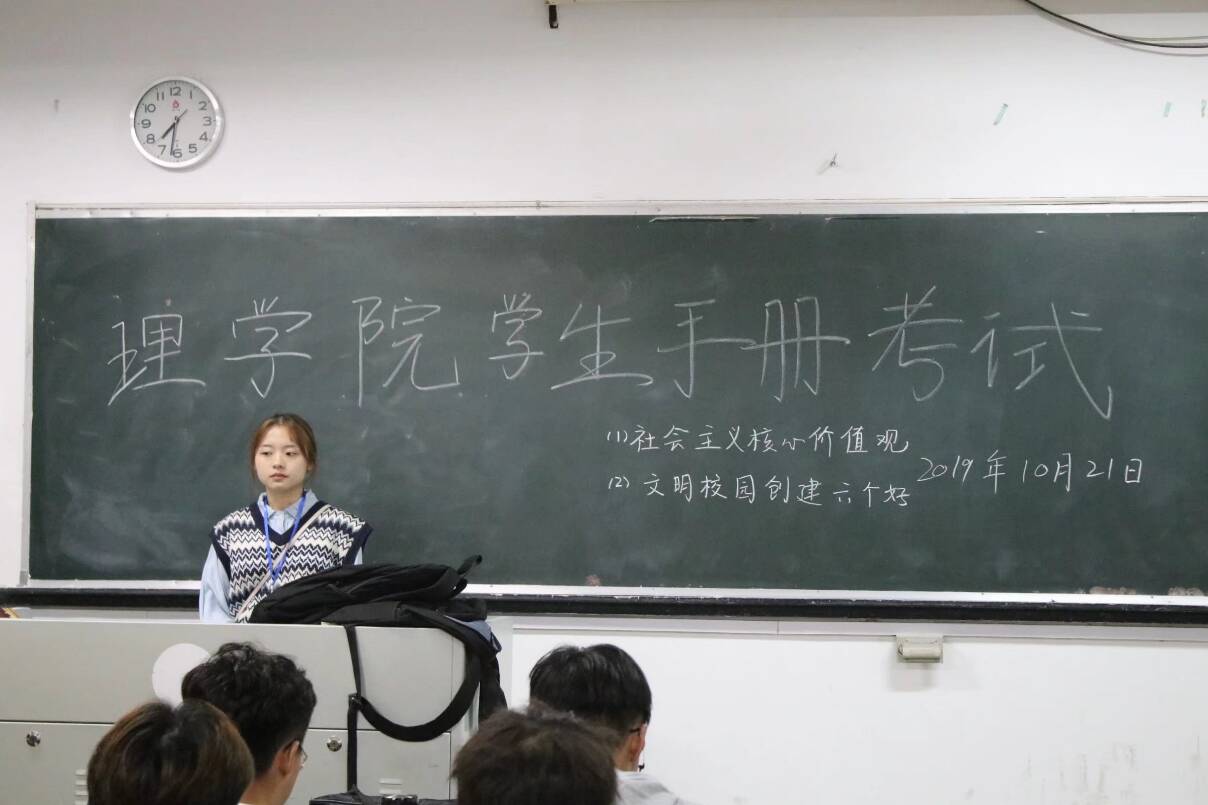 理学院学生手册考试
(1)社会主义核心价值观
(2)文明校园创建六个好
2019年10月21日
12
1
2
3
4
5
6
7
8
9
10
11